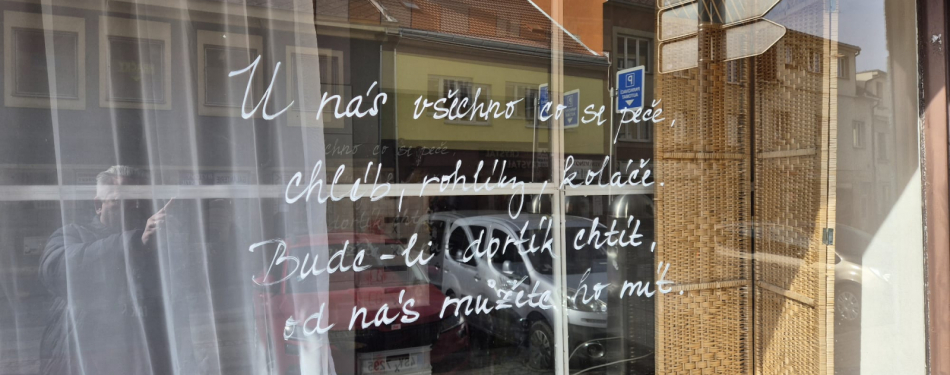 U nás všechno co se peče,
chléb, rohlíky, koláče.
Bude-li dortík chtít,
od nás můžete ho mít.